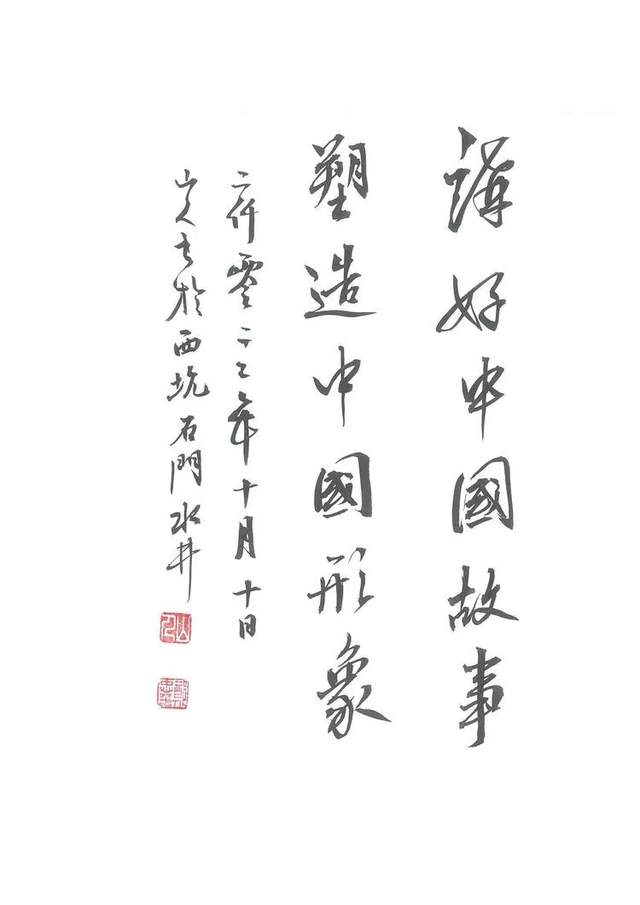 講好中國故事
塑造中國形象
二仟零二二年十月十日
山人書於西坑石門水井
山人